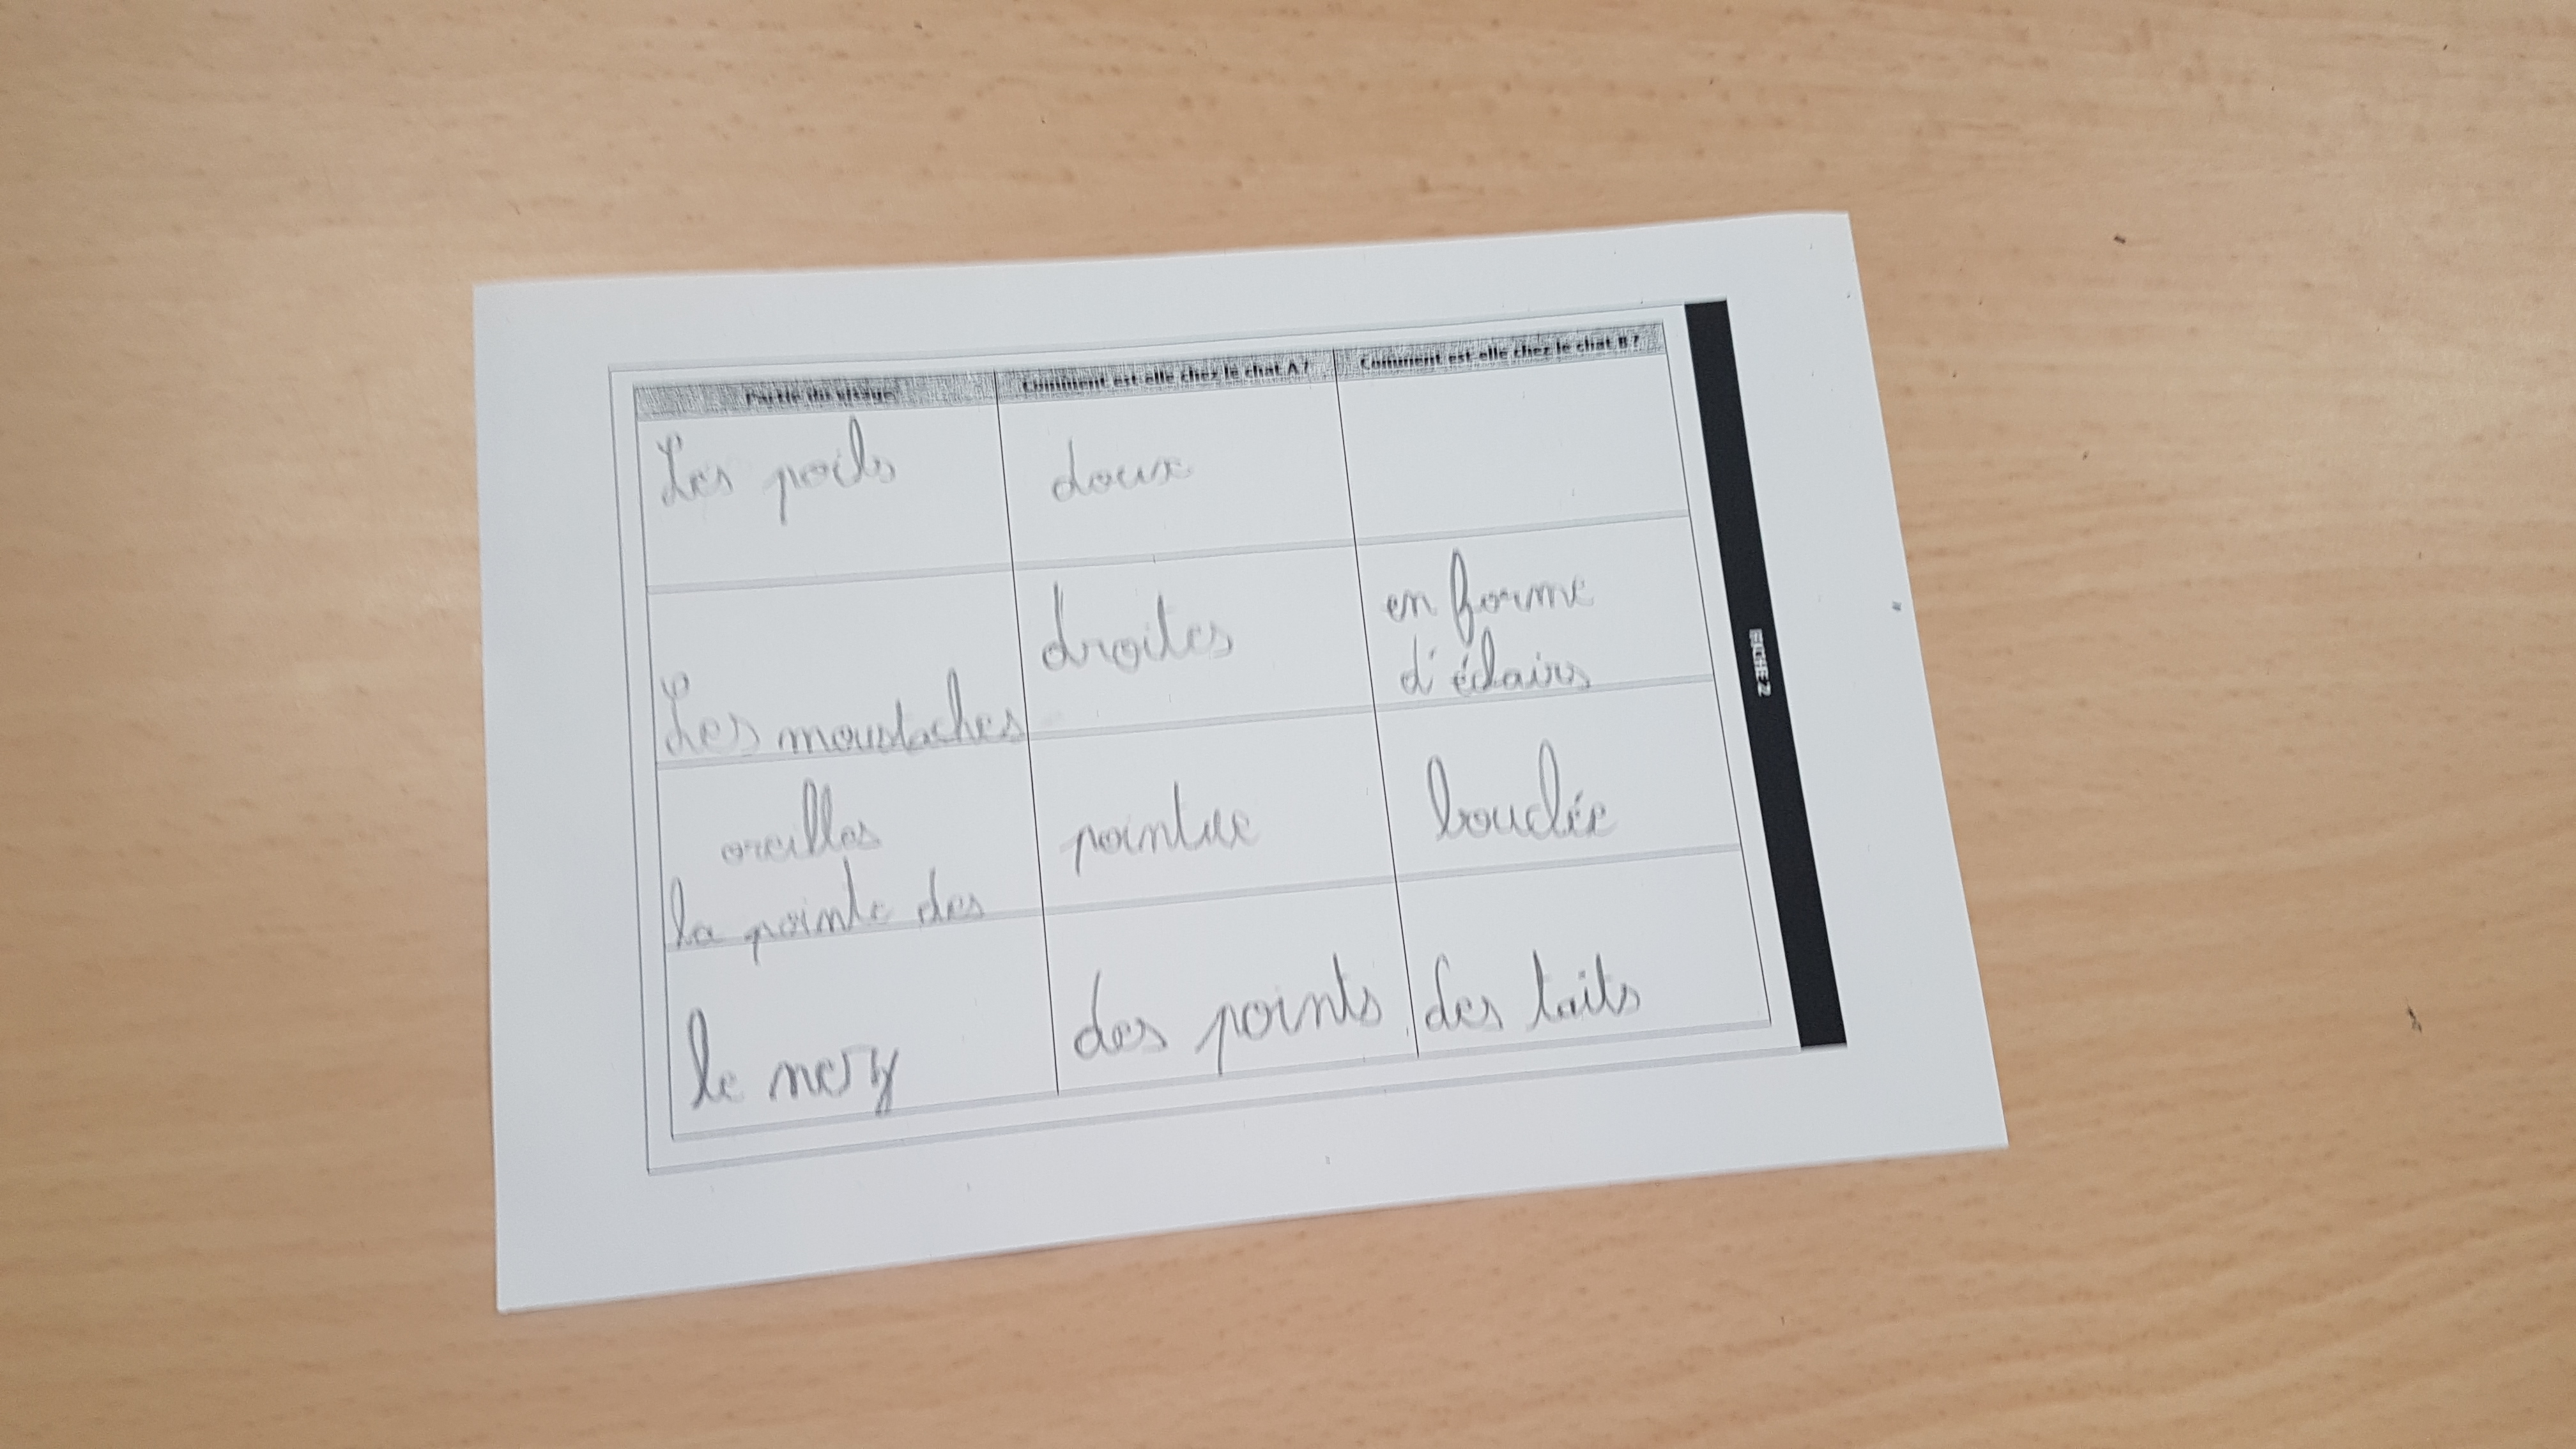 Partie du visage
Comment est-elle chez le chat A ?
Comment est-elle chez le chat B ?
Les poils
doux
Les moustaches
droites
en forme
d'éclairs
oreilles
la pointe des
pointue
bouclée
le nez
des points
des taits
FICHE 2